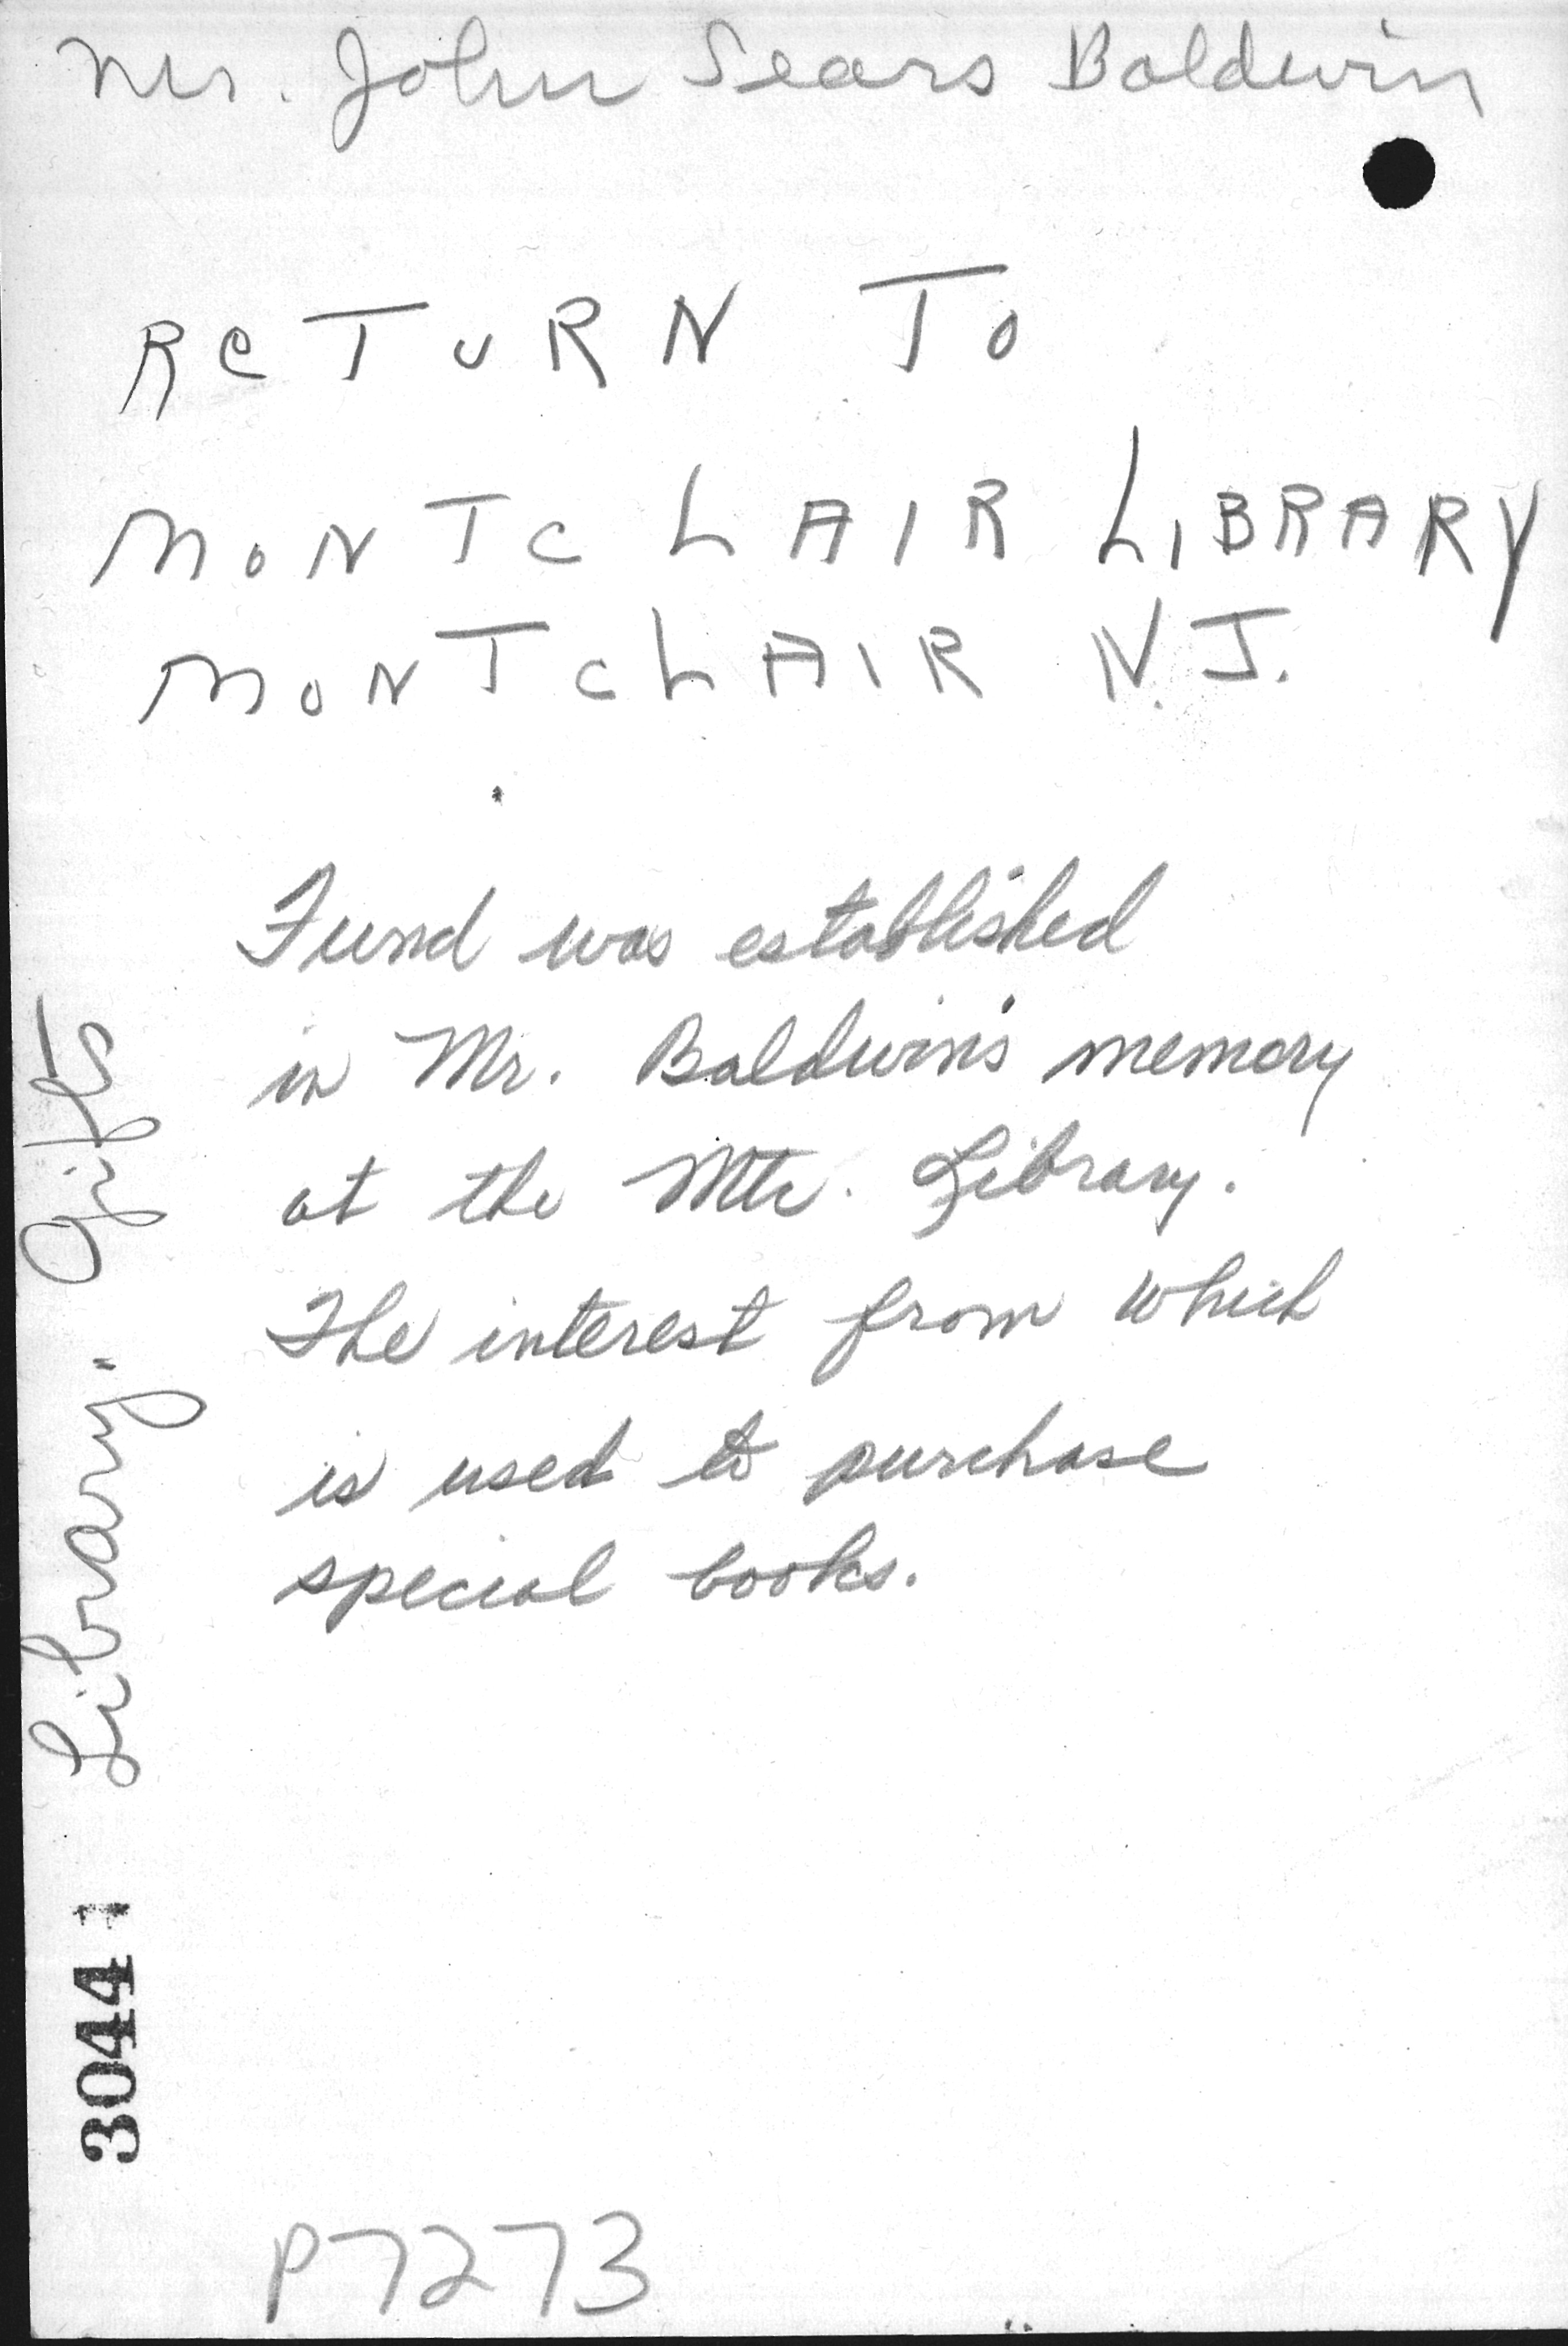 Mr. John Sears Baldwin
ReTURN To
MoNTcLAIR LIBRARY
MoNTcLAIR N.J.
Fund was established
in Mr. Baldwin's memory
at the Mtc. Library.
The interest from which
is used to purchase
special books.
Library. Gifts
3044
P7273